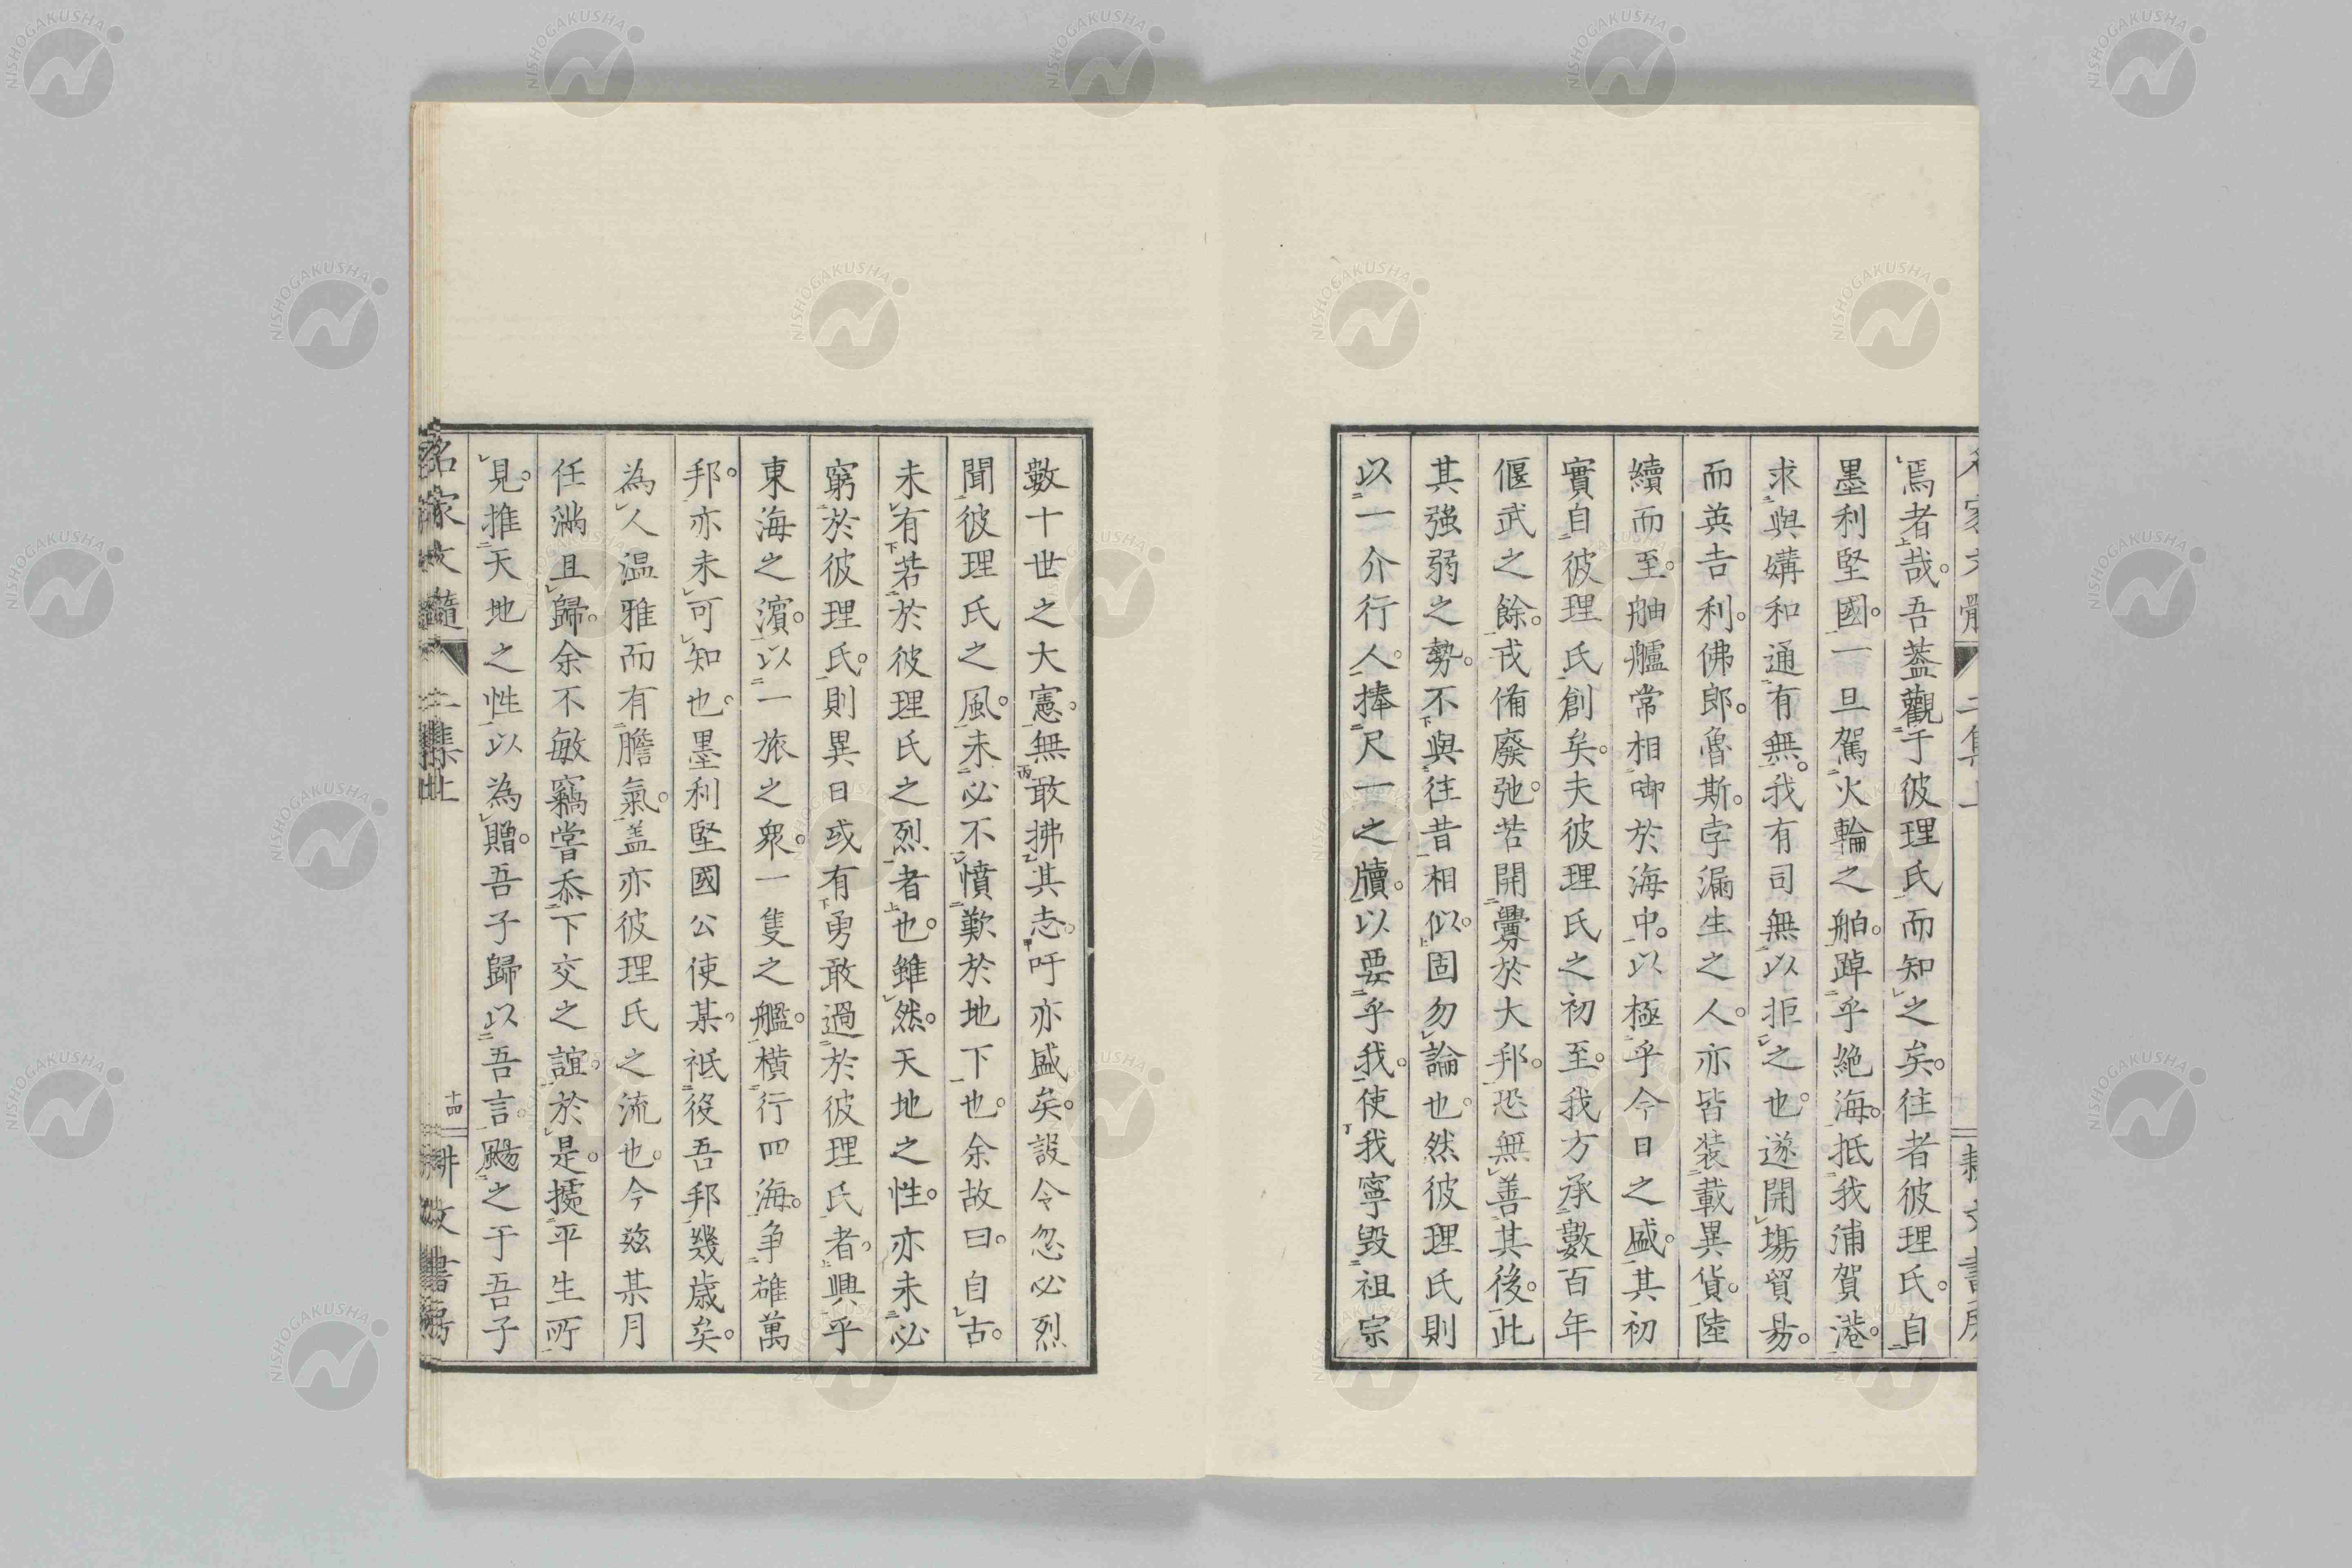 焉者哉。吾蓋觀于彼理氏而知之矣。往者彼理氏。自
墨利堅國。一旦駕火輪之舶。踔乎絶海。抵我浦賀港。
求與媾和通有無。我有司無以拒之也。遂開塲貿易。
而英吉利。佛郎。魯斯。孛漏生之人。亦皆装載異貨。陸
續而至。舳艫常相啣於海中。以極乎今日之盛。其初
實自彼理氏創矣。夫彼理氏之初至。我方承數百年
偃武之餘。戎備廢弛。若開釁於大邦。恐無善其後。此
其強弱之勢。不與往昔相似。固勿論也。然彼理氏則
以一介行人。捧尺一之牘。以要乎我。使我寧毀祖宗
數十世之大憲。無敢拂其志。吁亦盛矣。設令忽必烈
聞彼理氏之風。未必不憤歎於地下也。余故曰。自古。
未有若於彼理氏之烈者也。雖然。天地之性。亦未必
窮於彼理氏。則異日或有勇敢過於彼理氏者。興乎
東海之濱。以一旅之衆。一隻之艦。横行四海。爭雄萬
邦。亦未可知也。墨利堅國公使某。祗役吾邦幾歳矣。
為人温雅而有膽氣。盖亦彼理氏之流也。今玆某月
任滿且歸。余不敏竊嘗忝下交之誼。於是。攄平生所
見。推天地之性以為贈。吾子歸以吾言。颺之于吾子
名家文髓
二集上
十四